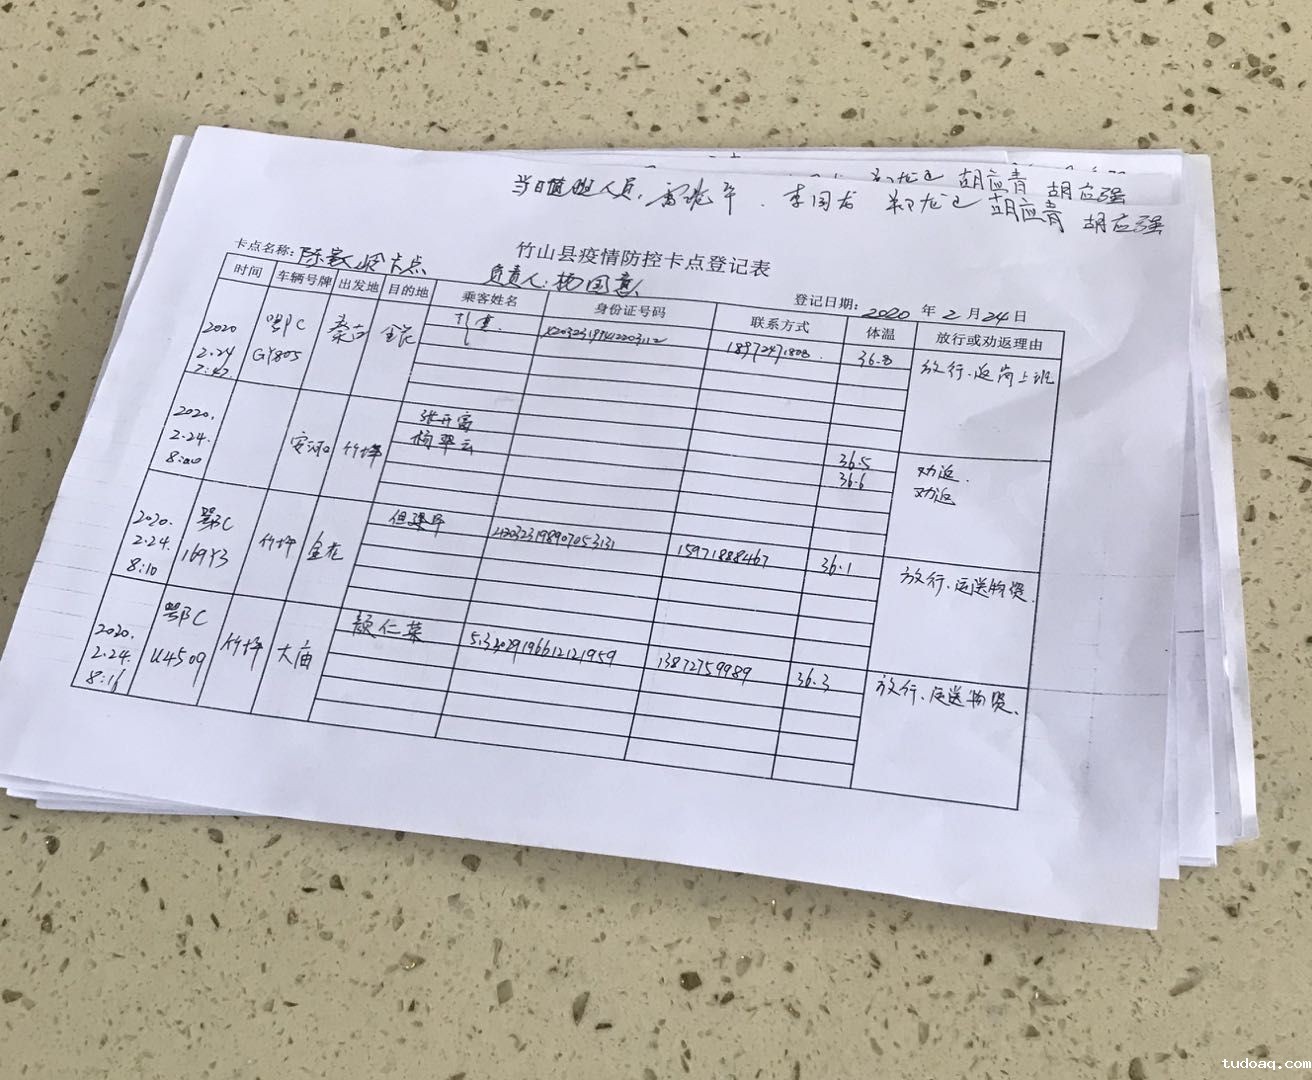 胡应青 胡应强
当日值班人员: 李国龙 胡应青 胡应强
竹山县疫情防控卡点登记表
卡点名称: 卡点 负责人:杨国
登记日期: 2020 年 2 月 24 日
时间 车辆号牌 出发地 目的地 乘客姓名 身份证号码 联系方式 体温 放行或劝返理由
2020 2.24 7:42 鄂C GY805 36.8 放行、返岗上班
2020. 2.24. 8:00 竹坪 张开富 36.5 劝返.
杨翠云 36.6 劝返
2020. 2.24. 8:10 鄂C 169Y3 竹坪 420323198907053131 15971888467 36.1 放行、运送物资.
2020. 2.24. 8:16 鄂C U4509 竹坪 大庙 颜仁菜 13872759989 36.3 放行、运送物资、
tudoaq.com